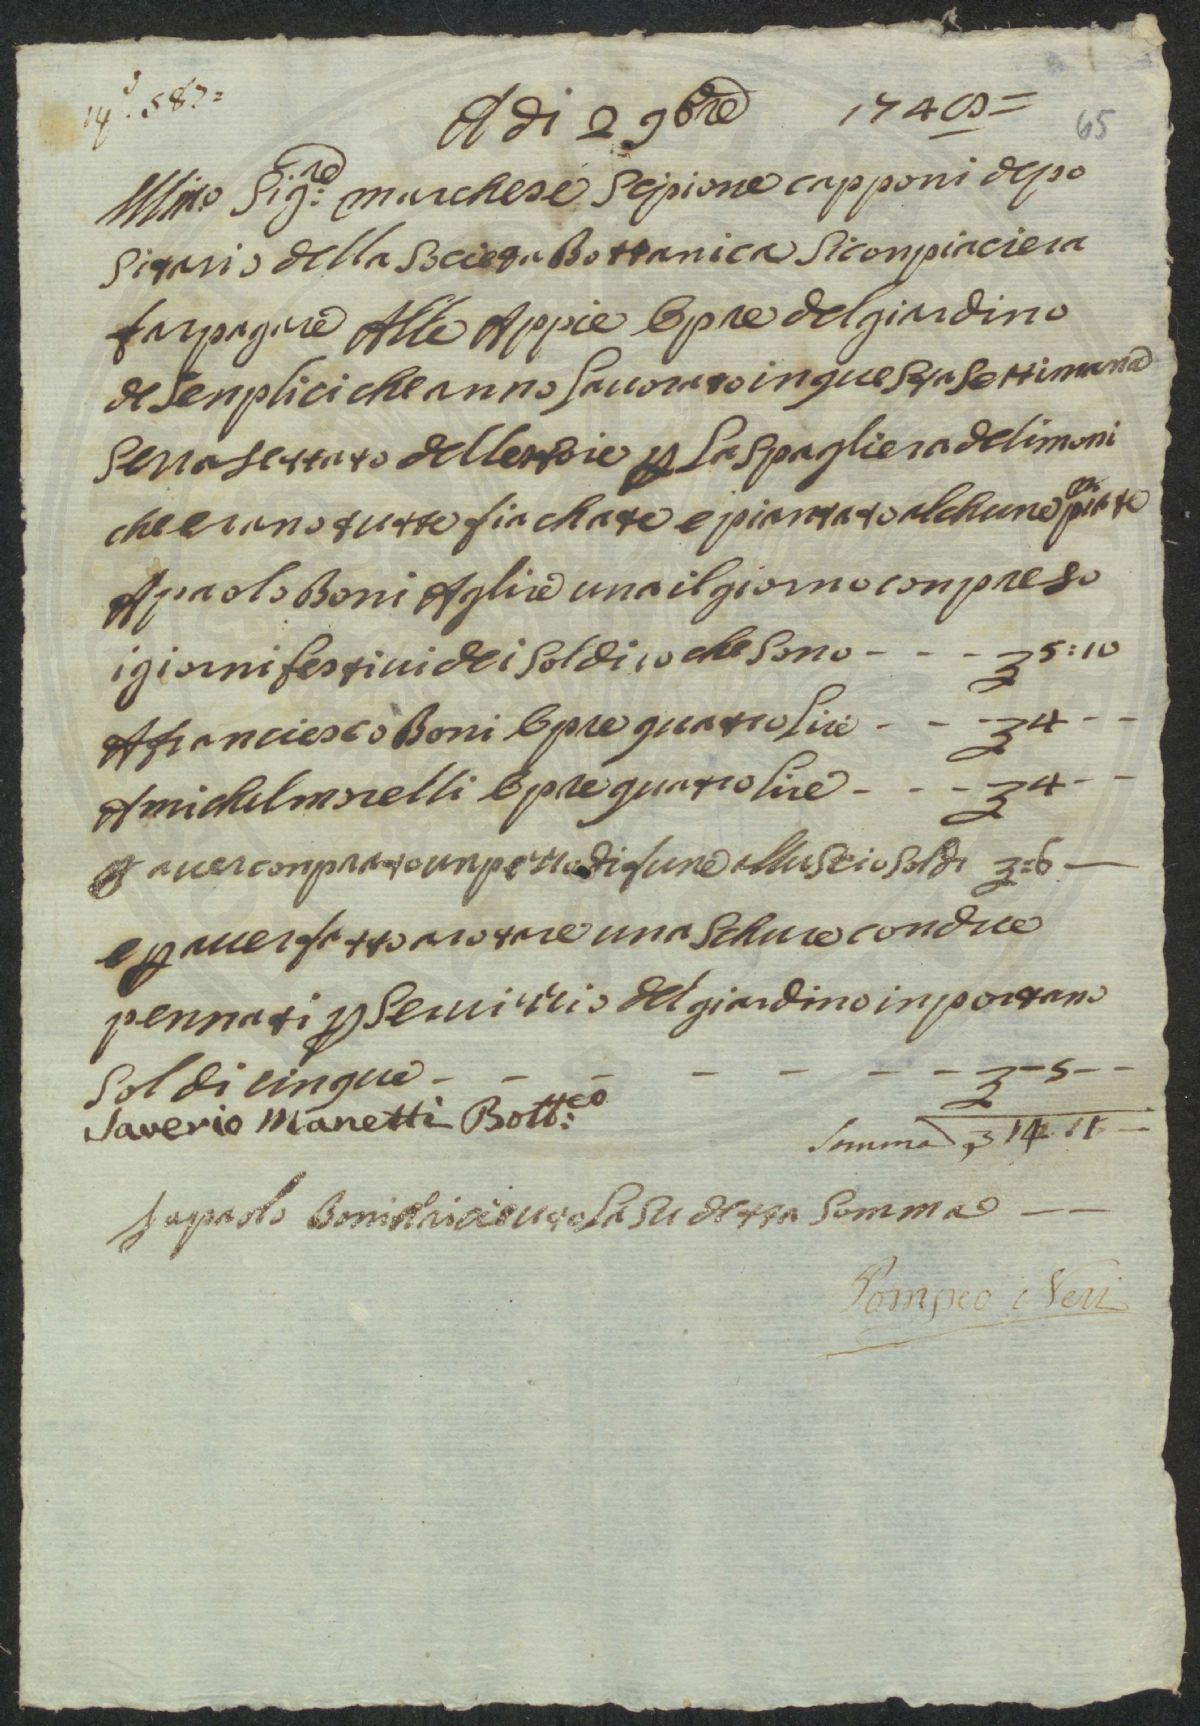 A di 2 9bre 1748=
65
Illmo Sig:re marchese Scipione capponi depo
sitario della Società Bottanica si conpiaciera
far pagare Alle Appie Opre del giardino
de Senplici che anno lauorato in questa Settimana
delle per la Spagliera de limoni
che erano tutte fiachate e piantato alchune piante
A paolo Boni A lire una il giorno conpreso
i giorni festiui dei Soldi 10 che Sono - - - £ 5:10
A franciesco Boni Opre quatro lire - - - £ 4 - -
A michel morelli Opre quatro lire - - - £ 4 - -
per auer conprato un pezzo di fune Soldi £ :6 —
e per auer fatto arotare una Schure con due
pennati per Seruitio del giardino inportano
Soldi cinque - - - - - - - £ - 5 - -
Saverio Manetti Bott:co
Somma £ 14. 11 —
Io paolo Boni o riceuuto la Su detta Somma — —
Pompeo Neri